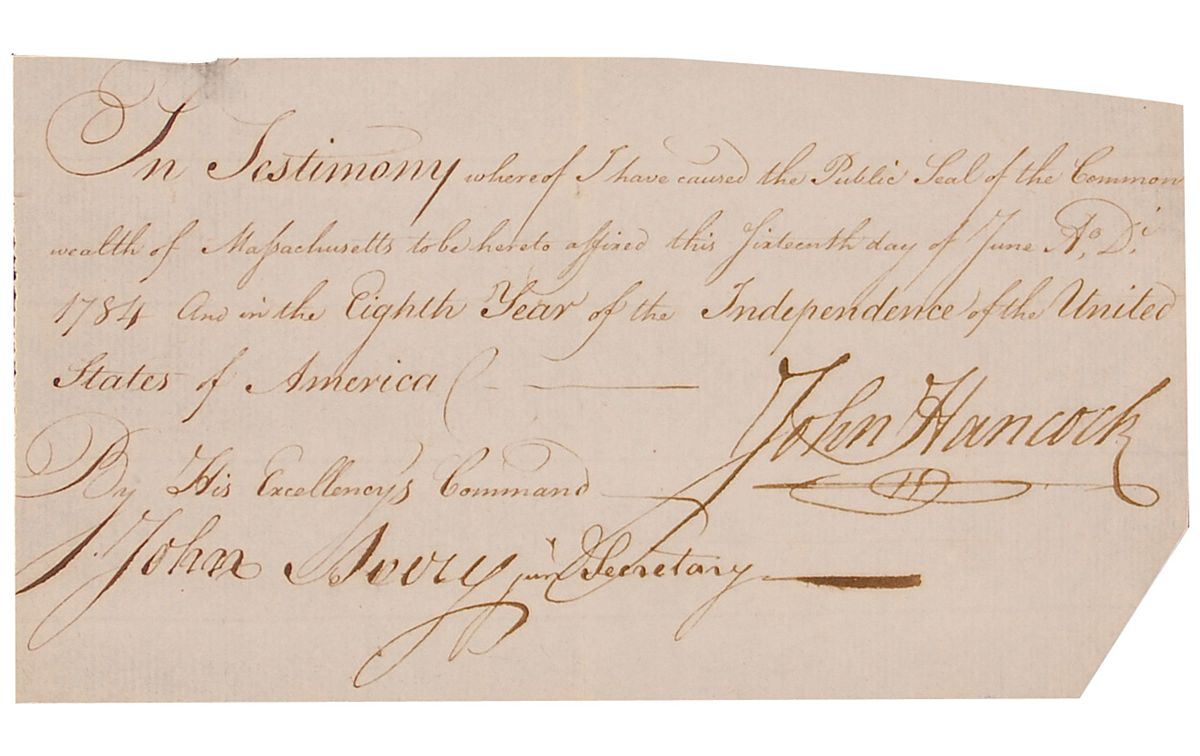 In Testimony whereof I have caused the Public Seal of the Common
wealth of Massachusetts to be hereto affixed this sixteenth day of June Ao. Di.
1784 And in the Eighth Year of the Independence of the United
States of America
John Hancock
By His Excellency's Command
John Avery junr Secretary